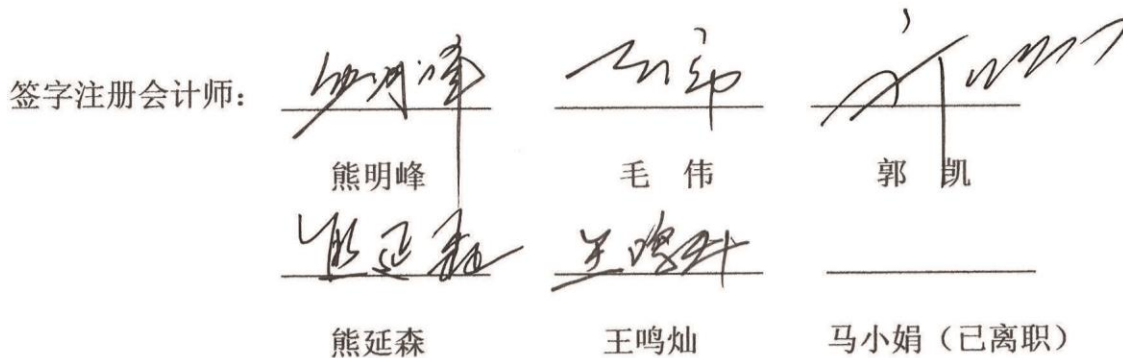 签字注册会计师：
熊明峰 毛 伟 郭 凯
熊延森 王鸣灿 马小娟（已离职）